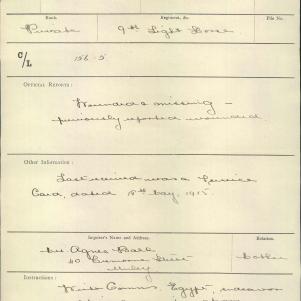 Rank. Regiment, &c. File No.
Private 9th Light Horse
C/L 156·5
OFFICIAL REPORTS:
Wounded & missing —
previously reported wounded
Other Information:
Last received was a Service
Card, dated May, 1915
Inquirer's Name and Address. Relation.
Mrs Agnes Ball Mother
40 Street
Unley
Instructions:
Write Comms. Egypt,